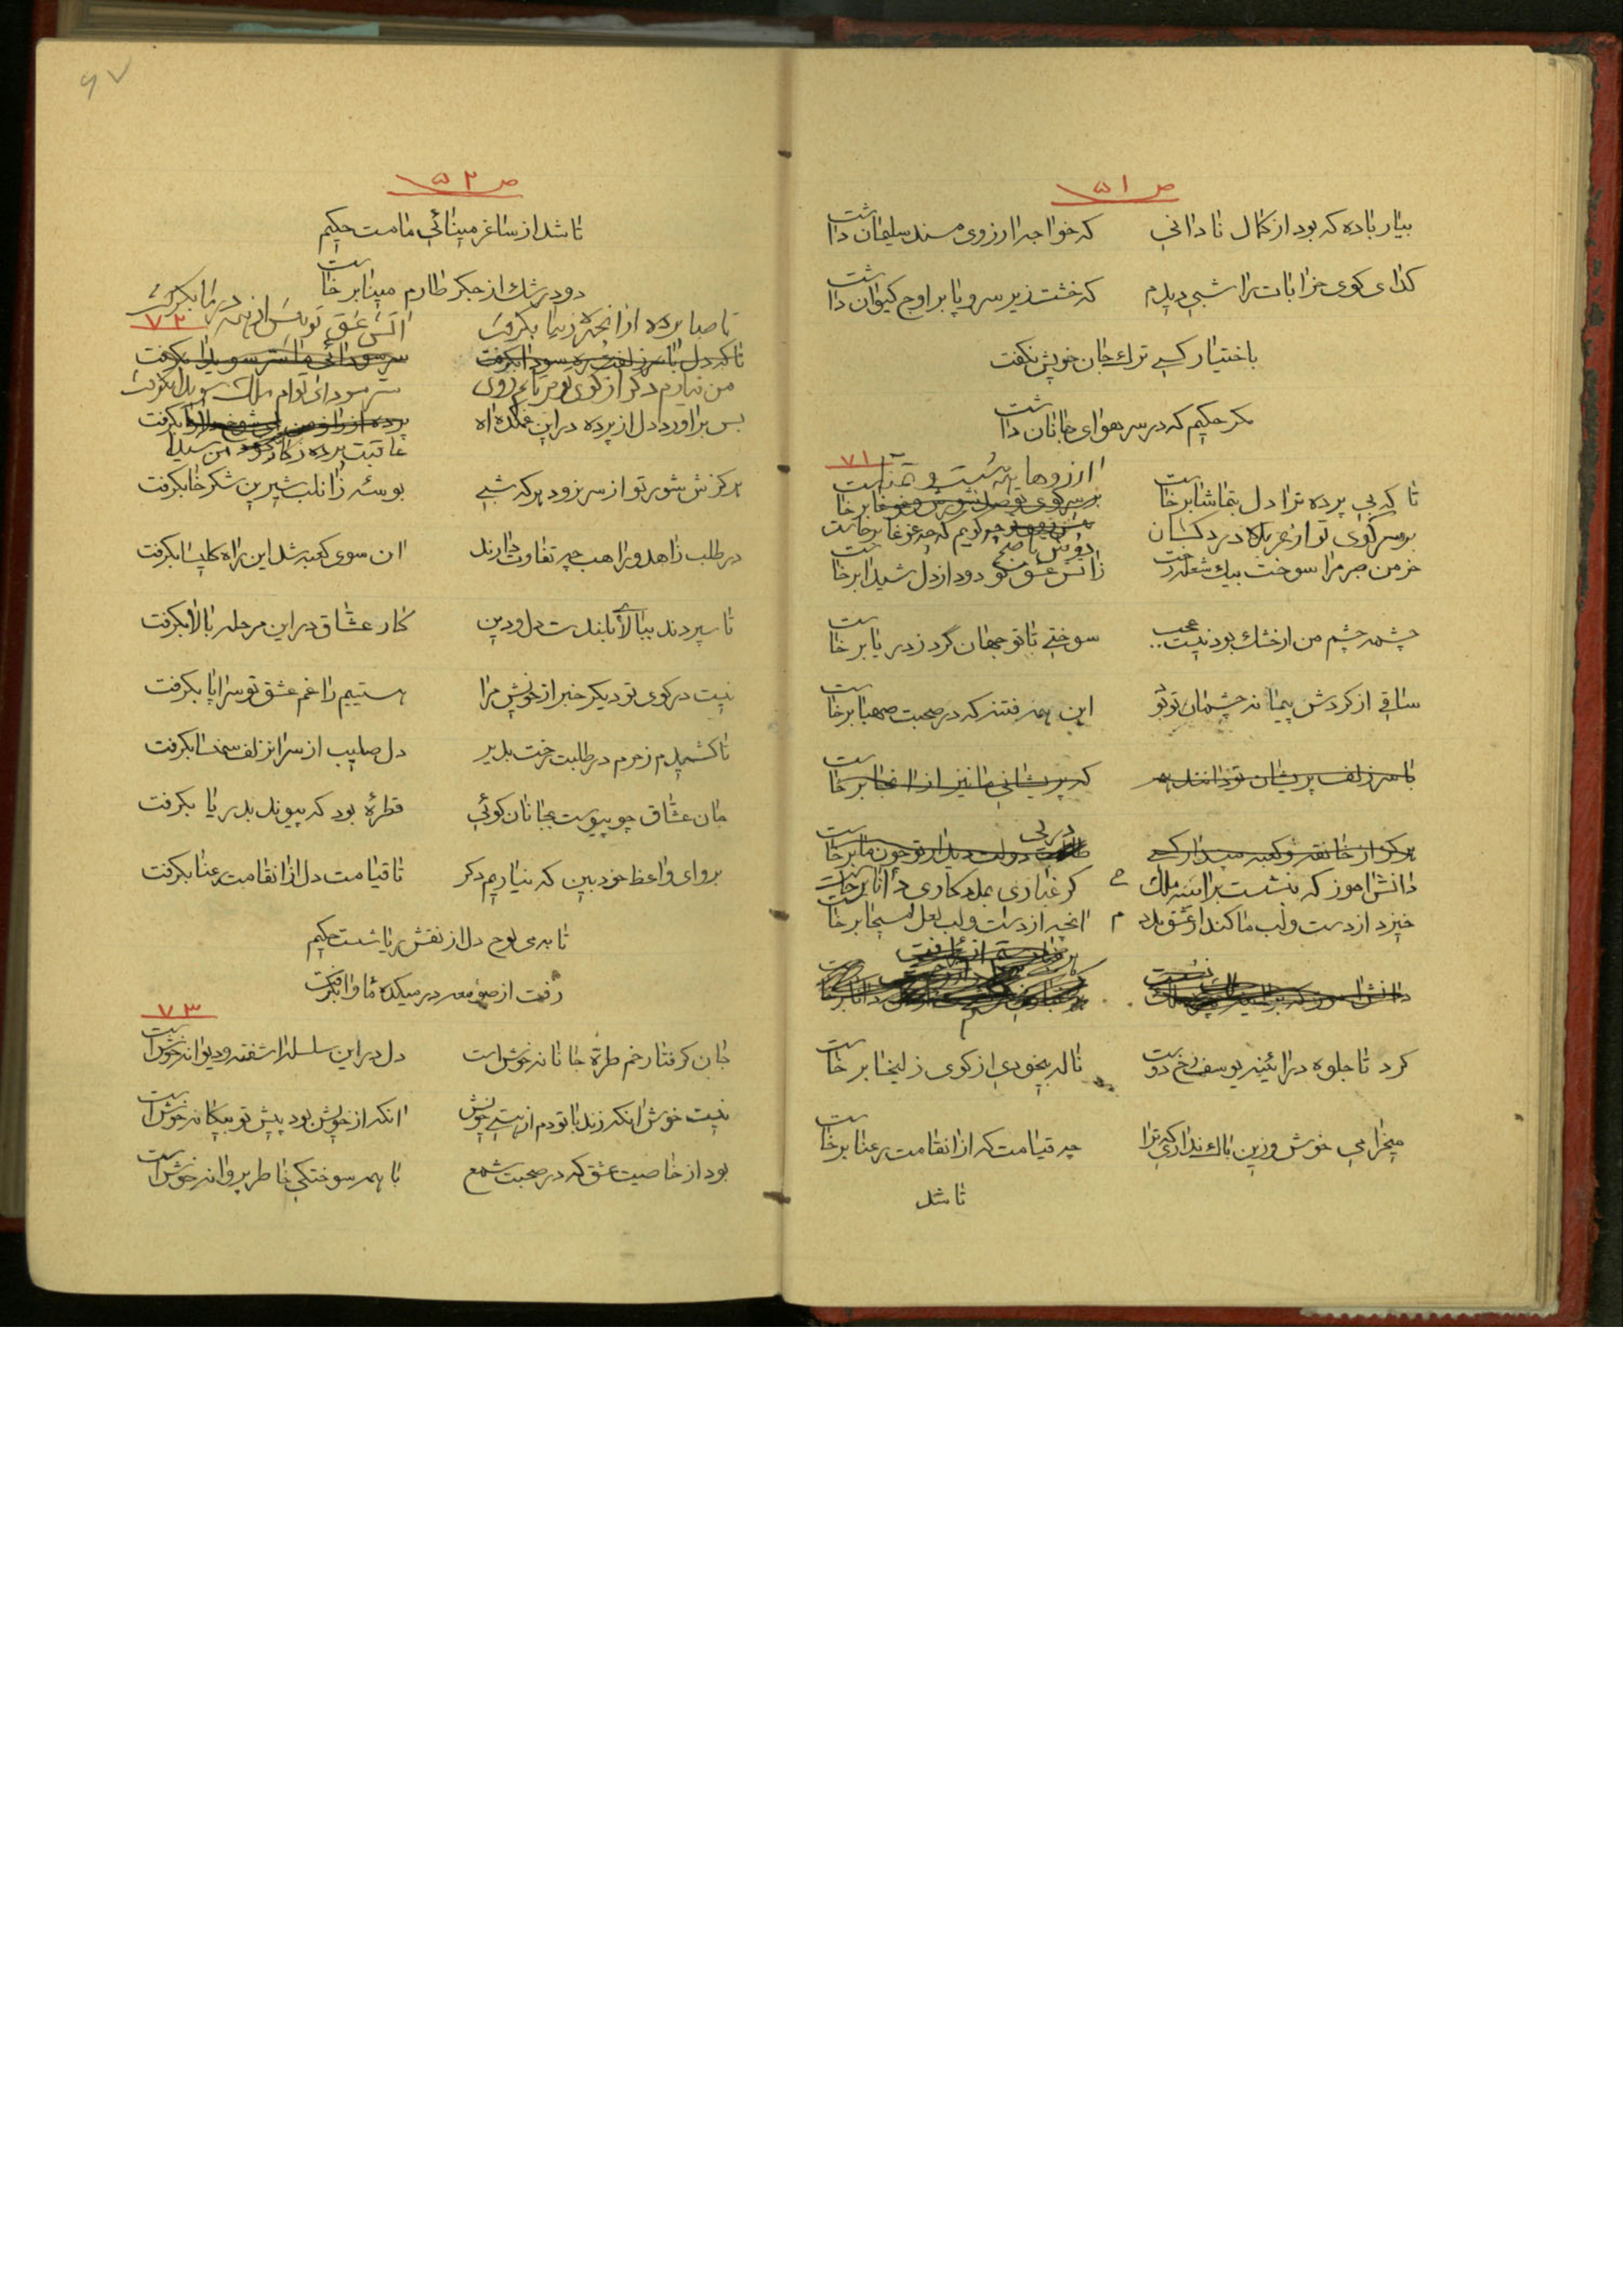 ص ۵۱
بیار باده که بود از کمال نادانی که خواجه را ارزوی مسند سلیمان داشت
کدای کوی خرابات را شبی دیدم که خشت زیر سر و پا بر اوج کیوان داشت
باختیار کسی ترك جان خویش نکفت
مکر حکیم که در سر هوای جانان داشت
۷۱
تا که بی پرده ترا دل بتماشا برخاست ارزوها
بر سر کوی تو از عربدهٔ دردکشان
خرمن صبر مرا سوخت بیك شعله رخت زاتش عشق تو دود از دل شیدا برخاست
چشمه چشم من ار خشك بود نیست عجب سوختی تا تو جهان گرد ز دریا برخاست
ساقی از کردش پیمانه چشمان تو بود این همه فتنه که در صحبت صهبا برخاست
با سر زلف پریشان تو دانند همه که پریشانی ما نیز از انجا برخاست
هر که از خانقه و کعبه دولت دیدار تو جون ما برخاست
دانش اموز که بنشست بر ائینه ملك کر غباری
خیزد از دست و لب ما کند ار عشق مدد م انچه از دست و لب لعل مسیحا برخاست
کرد تا جلوه در ائینه یوسف رخ دوست ناله بیخودی از کوی زلیخا برخاست
میخرامی خوش و زین باك نداری که ترا چه قیامت که از انقامت رعنا برخاست
تا شد
۶۷
ص ۵۲
تا شد از ساغر مینائی ما مست حکیم
دود رشك از جکر طارم مینا برخاست
۷۲
تا صبا پرده از انچهره زیبا بکرفت اتش عشق تو پس از همه در ما بکرفت
تا که دل با سر زلفت ره سودا بکرفت سر سودائی ما سر سویدا بکرفت
من نیارم دکر از کوی تو
بس براورد دل از پرده در این غمکده اه
عاقبت پرده ز کار
هرکزش شور تو از سر نرود هر که شبی بوسئه زانلب شیرین شکرخا بکرفت
در طلب زاهد و راهب چه تفاوت دارند ان سوی کعبه شد این راه کلیسا بکرفت
تا سپردند ببالای بلندت دل و دین کار عشاق در این مرحله بالا بکرفت
نیست در کوی تو دیکر خبر از خویش مرا هستیم را غم عشق تو سراپا بکرفت
تا کشیدم ز حرم در طلبت رخت بدیر دل صلیب از سر انزلف سمنسا بکرفت
جان عشاق چو پیوست بجانان کوئی قطرهٔ بود که پیوند بدریا بکرفت
برو ای واعظ خودبین که نیاریم دکر تا قیامت دل از انقامت رعنا بکرفت
تا بمی لوح دل از نقش ریا شست حکیم
رفت از صومعه در میکده ماوا بکرفت
۷۳
جان کرفتار خم طرهٔ جانانه خوش است دل در این سلسله اشفته و دیوانه خوش است
نیست خوش انکه زند با تو دم از هستی خویش انکه از خویش بود پیش تو بیکانه خوش است
بود از خاصیت عشق که در صحبت شمع با همه سوختکی خاطر پروانه خوش است